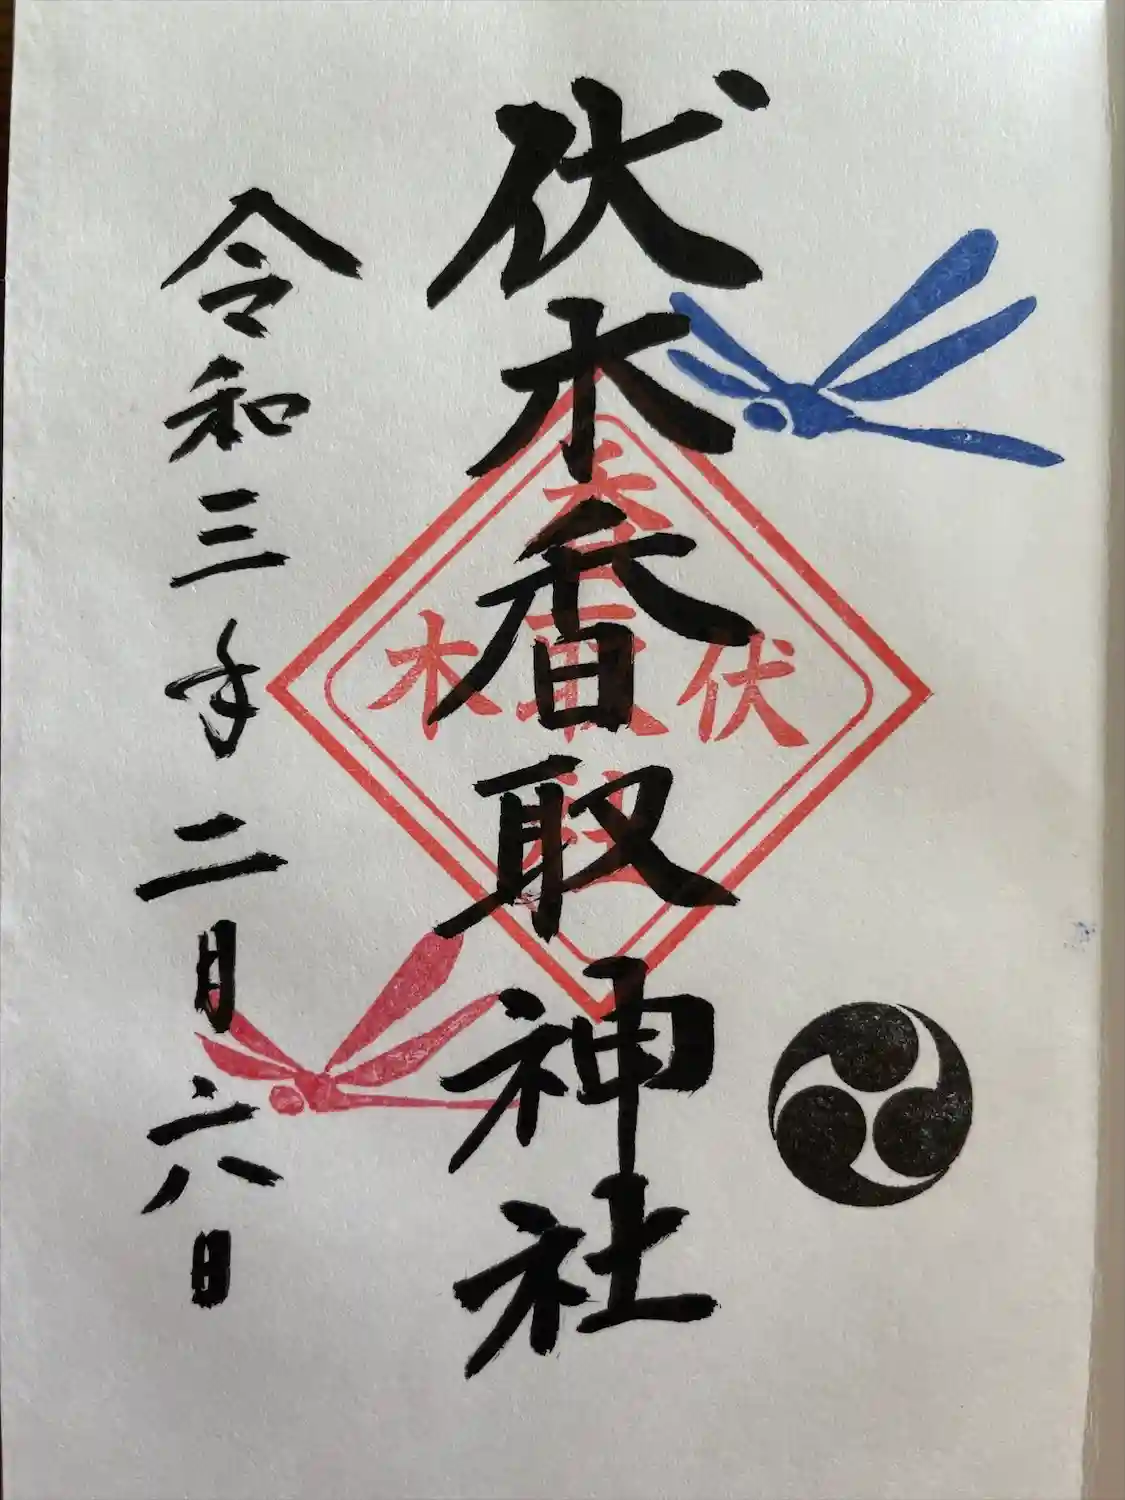 伏木香取神社
伏木
香取
社
令和三年二月六日